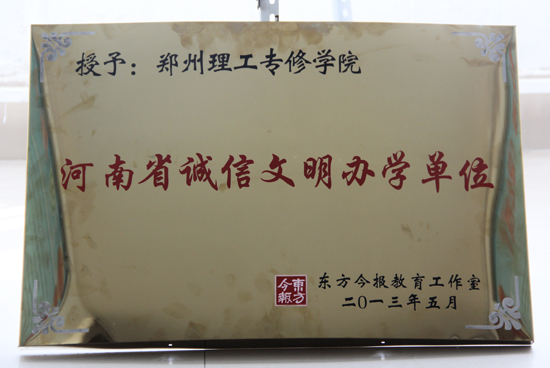 授予：郑州理工专修学院
河南省诚信文明办学单位
东方今报
东方今报教育工作室
二〇一三年五月